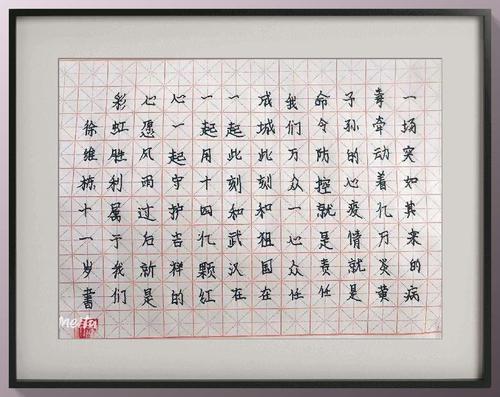 一场突如其来的病
毒牵动着亿万炎黄
子孙的心疫情就是
命令防控就是责任
我们万众一心众任
成城此刻和祖国在
一起此刻和武汉在
一起用十四亿颗红
心一起守护吉祥的
心愿风雨过后就是
彩虹胜利属于我们
徐维栋十一岁书
Meitu